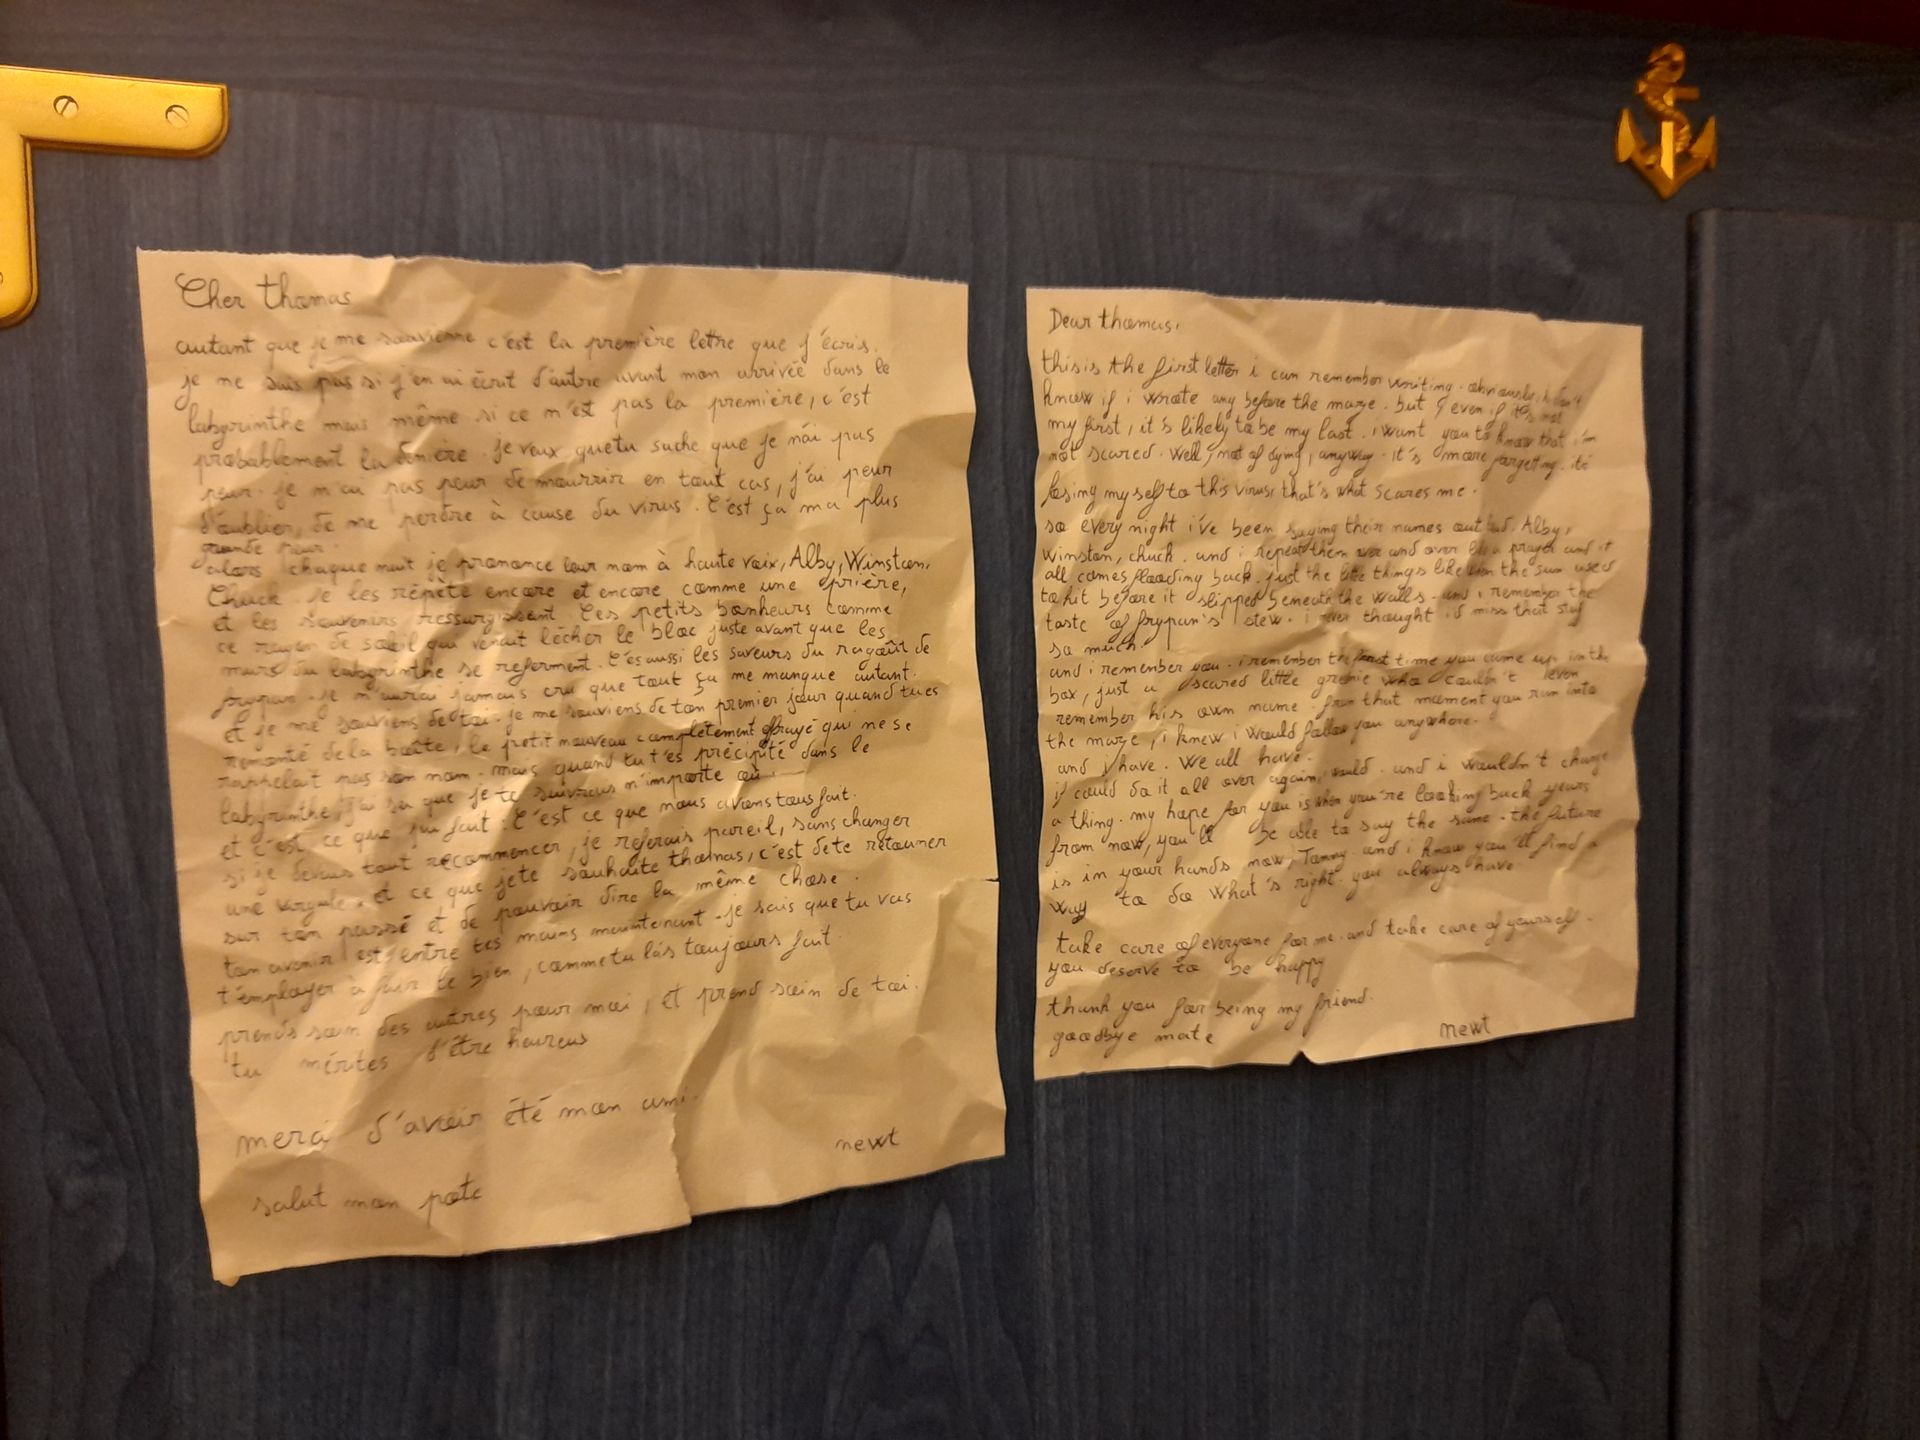 Cher thomas
autant que je me souvienne c'est la première lettre que j'écris.
je ne sais pas si j'en ai écrit d'autre avant mon arrivée dans le
labyrinthe mais même si ce n'est pas la première, c'est
probablement la denière. je veux que tu sache que je n'ai pas
peur. je n'ai pas peur de mourrir en tout cas, j'ai peur
d'oublier, de me perdre à cause du virus. C'est ça ma plus
grande peur.
alors chaque nuit je prononce leur nom à haute voix, Alby, Winston,
Chuck. Je les répète encore et encore comme une prière,
et les souvenirs ressurgissent. Ces petits bonheurs comme
ce rayon de soleil qui venait lécher le bloc juste avant que les
murs du labyrinthe se referment. C'es aussi les saveurs du ragoût de
frypan. Je n'aurai jamais cru que tout ça me manque autant.
et je me souviens de toi. je me souviens de ton premier jour quand tu es
remonté de la boîte, le petit nouveau complètement effrayé qui ne se
rappelait pas son nom. mais quand tu t'es précipité dans le
labyrinthe, j'ai su que je te suivrais n'importe où.
et c'est ce que j'ai fait. C'est ce que nous avons tous fait.
si je devais tout recommencer, je referais pareil, sans changer
une virgule. et ce que je te souhaite thomas, c'est de te retouner
sur ton passé et de pouvoir dire la même chose.
ton avenir est entre tes mains maintenant. Je sais que tu vas
t'employer à faire le bien, comme tu l'as toujours fait.
prends soin des autres pour moi, et prend soin de toi.
tu mérites d'être heureus
merci d'avoir été mon ami.
newt
salut mon pote
Dear thomas,
this is the first letter i can remember writing. obviously, i don't
know if i wrote any before the maze. but even if it's not
my first, it's likely to be my last. i want you to know that i'm
not scared. well, not of dying, anyway. it's more forgetting. it's
losing myself to this virus, that's what scares me.
so every night i've been saying their names out loud. Alby,
Winston, chuck. and i repeat them over and over like a prayer and it
all comes flooding back. just the little things like the sun used
to hit before it slipped beneath the walls. and i remember the
taste of frypan's stew. i never thought i'd miss that stuf
so much.
and i remember you. i remember the first time you came up in the
box, just a scared little greenie who couldn't even
remember his own name. from that moment you run into
the maze, i knew i would follow you anywhere.
and i have. We all have.
if could do it all over again, would. and i wouldn't change
a thing. my hope for you is when you're looking back years
from now, you'll be able to say the same. the future
is in your hands now, Tommy. and i know you'll find a
way to do what's right. you always have.
take care of everyone for me. and take care of yourself.
you deserve to be happy
thank you for being my friend.
goodbye mate
newt